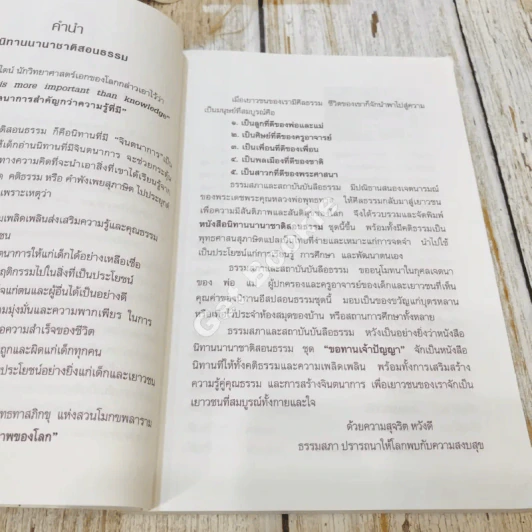 คำนำ
นิทานนานาชาติสอนธรรม
นักวิทยาศาสตร์เอกของโลกกล่าวเอาไว้ว่า
is more important than knowledge"
นาการสำคัญกว่าความรู้ที่มี"
สอนธรรม ก็คือนิทานที่มี "จินตนาการ" เป็น
ให้เด็กอ่านนิทานที่มีจินตนาการ จะช่วยกระตุ้น
ทางความคิดที่จะนำเอาสิ่งที่เขาได้เรียนรู้จาก
คติธรรม หรือ คำพังเพยสุภาษิต ไปประยุกต์
เพราะเหตุว่า
เพลิดเพลินส่งเสริมความรู้และคุณธรรม
นาการให้แก่เด็กได้อย่างเหลือเชื่อ
ฤติกรรมไปในสิ่งที่เป็นประโยชน์
แก่ตนและผู้อื่นได้เป็นอย่างดี
มุ่งมั่นและความพากเพียร ในการ
ความสำเร็จของชีวิต
ถูกและผิดแก่เด็กทุกคน
ประโยชน์อย่างยิ่งแก่เด็กและเยาวชน
ทธทาสภิกขุ แห่งสวนโมกขพลาราม
าพของโลก"
เมื่อเยาวชนของเรามีศีลธรรม ชีวิตของเขาก็จักนำพาไปสู่ความ
เป็นมนุษย์ที่สมบูรณ์คือ
๑ เป็นลูกที่ดีของพ่อและแม่
๒ เป็นศิษย์ที่ดีของครูอาจารย์
๓ เป็นเพื่อนที่ดีของเพื่อน
๔ เป็นพลเมืองที่ดีของชาติ
๕ เป็นสาวกที่ดีของพระศาสนา
ธรรมสภาและสถาบันบันลือธรรม มีปณิธานสนองเจตนารมณ์
ของพระเดชพระคุณหลวงพ่อพุทธทาส ให้ศีลธรรมกลับมาสู่เยาวชน
เพื่อความมีสันติภาพและสันติสุขของโลก จึงได้รวบรวมและจัดพิมพ์
หนังสือนิทานนานาชาติสอนธรรม ชุดนี้ขึ้น พร้อมทั้งมีคติธรรมเป็น
พุทธศาสนสุภาษิตแปลเป็นไทยที่ง่ายและเหมาะแก่การจดจำ นำไปใช้
เป็นประโยชน์แก่การเรียนรู้ การศึกษา และพัฒนาตนเอง
ธรรมสภาและสถาบันบันลือธรรม ขออนุโมทนาในกุศลเจตนา
ของ พ่อ แม่ ผู้ปกครองและครูอาจารย์ของเด็กและเยาวชนที่เห็น
คุณค่าของนิทานอีสปสอนธรรมชุดนี้ มอบเป็นของขวัญแก่บุตรหลาน
หรือเพื่อไว้ประจำห้องสมุดของบ้าน หรือสถานการศึกษาทั้งหลาย
ธรรมสภาและสถาบันบันลือธรรม หวังเป็นอย่างยิ่งว่าหนังสือ
นิทานนานาชาติสอนธรรม ชุด "ขอทานเจ้าปัญญา" จักเป็นหนังสือ
นิทานที่ให้ทั้งคติธรรมและความเพลิดเพลิน พร้อมทั้งการเสริมสร้าง
ความรู้คู่คุณธรรม และการสร้างจินตนาการ เพื่อเยาวชนของเราจักเป็น
เยาวชนที่สมบูรณ์ทั้งกายและใจ
ด้วยความสุจริต หวังดี
ธรรมสภา ปรารถนาให้โลกพบกับความสงบสุข